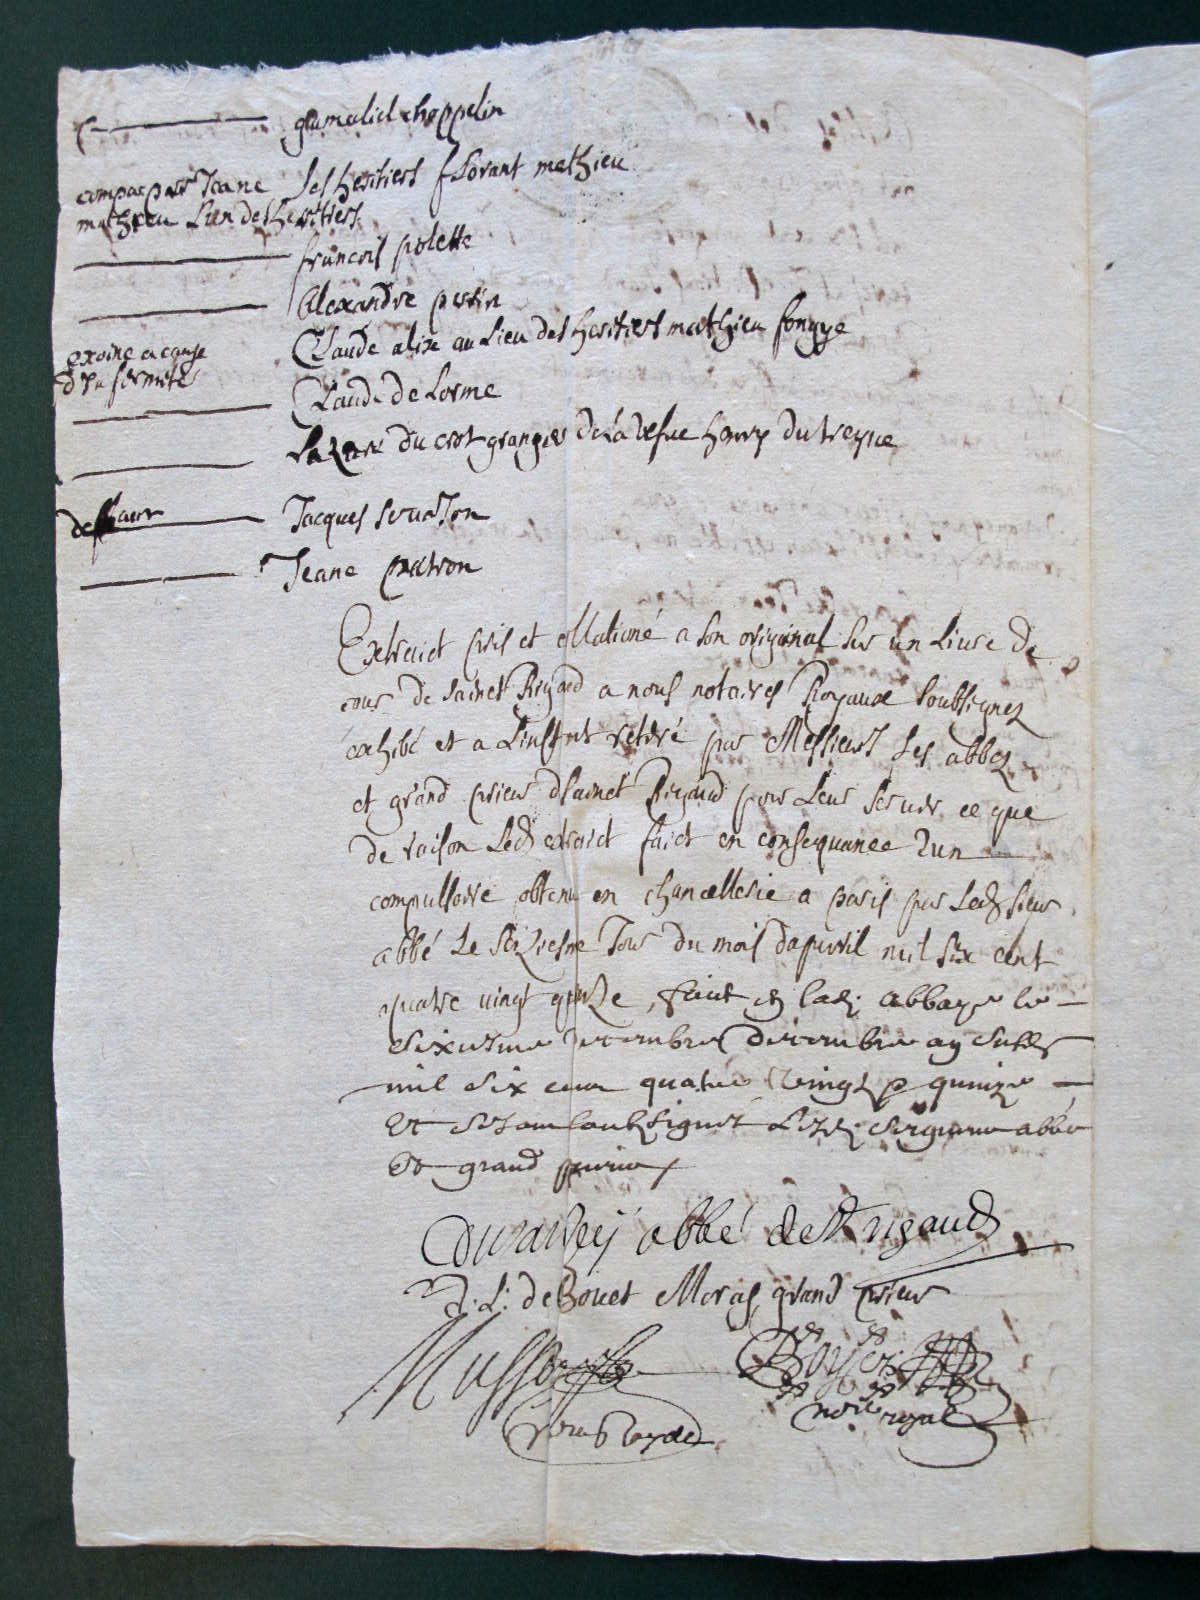 gamaliel choppelin
compar par Jeane Les heritiers florant mathieu
mathieu l'un des heritiers
francois polette
Alexandre perrin
Claude alix au lieu des heritiers mathieu
exoine a cause
d'infirmité
Claude de Lorme
Lazare du crot granger de la vefue henry dutreyue
deffaut Jacques
Jeane patron
Extraict pris et collationé a son original sur un Liure de
cour de sainct Rigaud a nous notaires Royaux soubsignez
exhibé et a Linstant retiré par Messieurs les abbez
et grand prieur dsainct Rigaud pour Leur seruir ce que
de raison Led extraict faict en consequance dun
compulsoire obtenu en chancellerie a paris par Led sieur
abbé Le seiziesme Jour du mois dapuril mil six cent
quatre vingt quinze, faict en lad. abbaye le
sixiesme decembre an susd
mil six cent quatre vingt quinze
Et se sont soubsignez Lesd. seigneur abbé
Et grand prieur
abbé de St rigaud
D. L. de Bouet Moras grand prieur
Boyer
nore royal